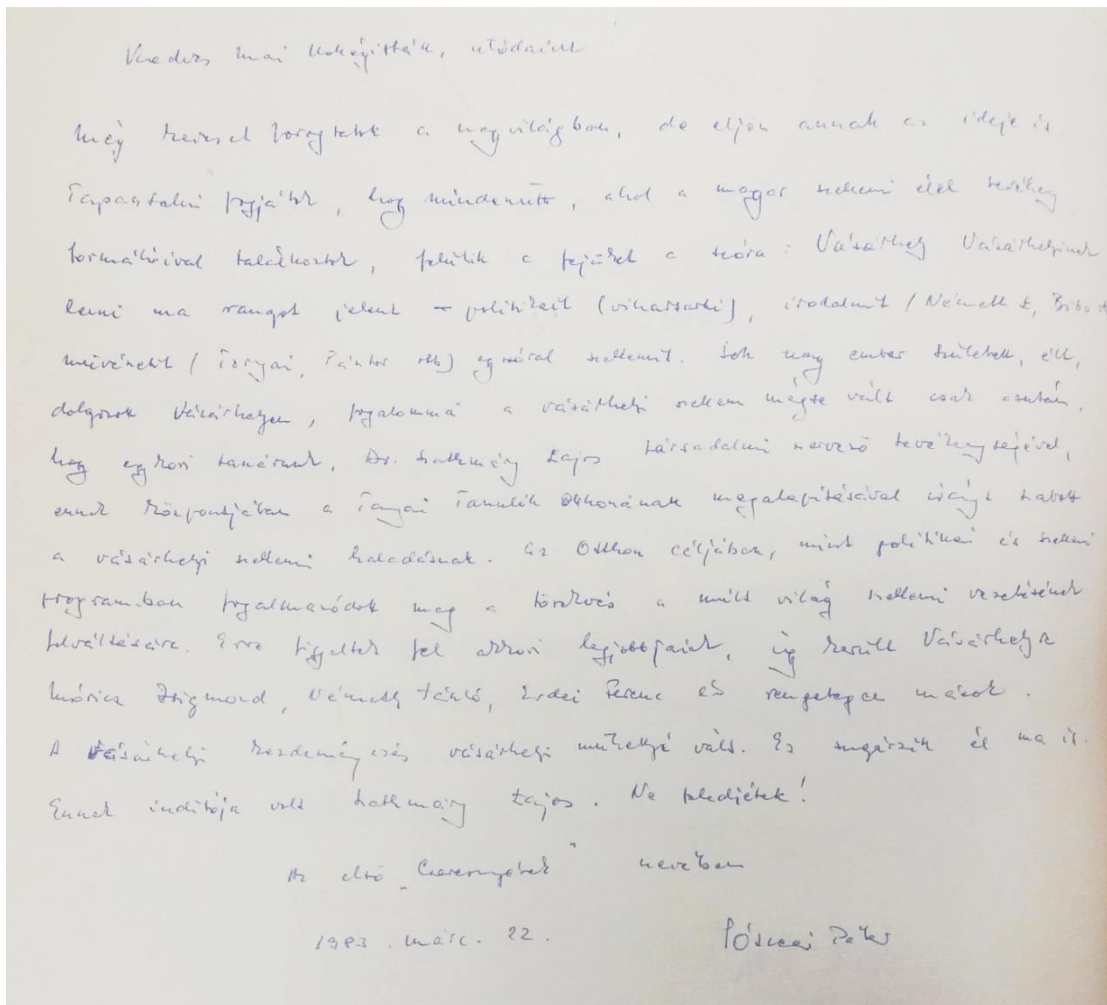 Kedves mai kollégisták, utódaink
Még kevesel forogtatok a nagyvilágban, de eljön annak az ideje is.
Tapasztalni fogjátok, hogy mindenütt, ahol a magyar szellemi élet tevékeny
formálóival találkoztok, felütik a fejüket a szóra: Vásárhely. Vásárhelyinek
lenni ma rangot jelent – politikait (viharsarki), irodalmit (Németh L, Bibó
művészetit (Tornyai, stb) egyszóval szellemit. Sok nagy ember született, élt,
dolgozott Vásárhelyen, fogalommá a vásárhelyi szellem mégse vált csak azután,
hogy egykori tanárunk, Dr. Szathmáry Lajos társadalmi szervező tevékenységével,
ennek központjában a Tanyai Tanulók Otthonának megalapításával irányt szabott
a vásárhelyi szellemi haladásnak. Az Otthon céljában, mint politikai és szellemi
programban fogalmazódott meg a törekvés a múlt világ szellemi vezetésének
felváltására. Erre figyeltek fel akkori legjobbjaink, így került Vásárhelyre
Móricz Zsigmond, Németh László, Erdei Ferenc és rengetegen mások.
A vásárhelyi kezdeményezés vásárhelyi műhellyé vált. Ez sugárzik él ma is.
Ennek indítója volt Szathmáry Lajos. Ne feledjétek!
Az első „Cseresnyések" nevében
1983. márc. 22. Pál